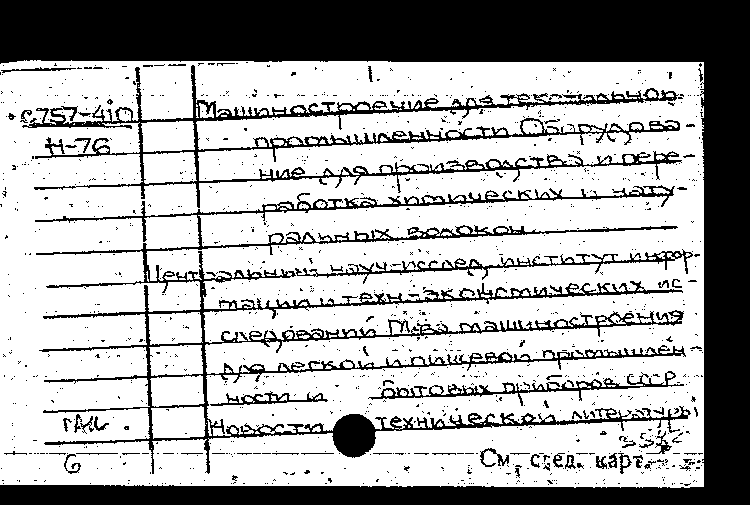 с757-410 Машиностроение для текстильной
Н-76 промышленности Оборудова-
ние для производства и пере-
работка химических и нату-
ральных волокон.
Центральный науч-исслед, институт инфор-
мации и техн-экономических ис-
следований М-ва машиностроения
для легкой и пищевой промышлен-
ности и бытовых приборов СССР.
Новости технической литературы
6 См. след. карт.